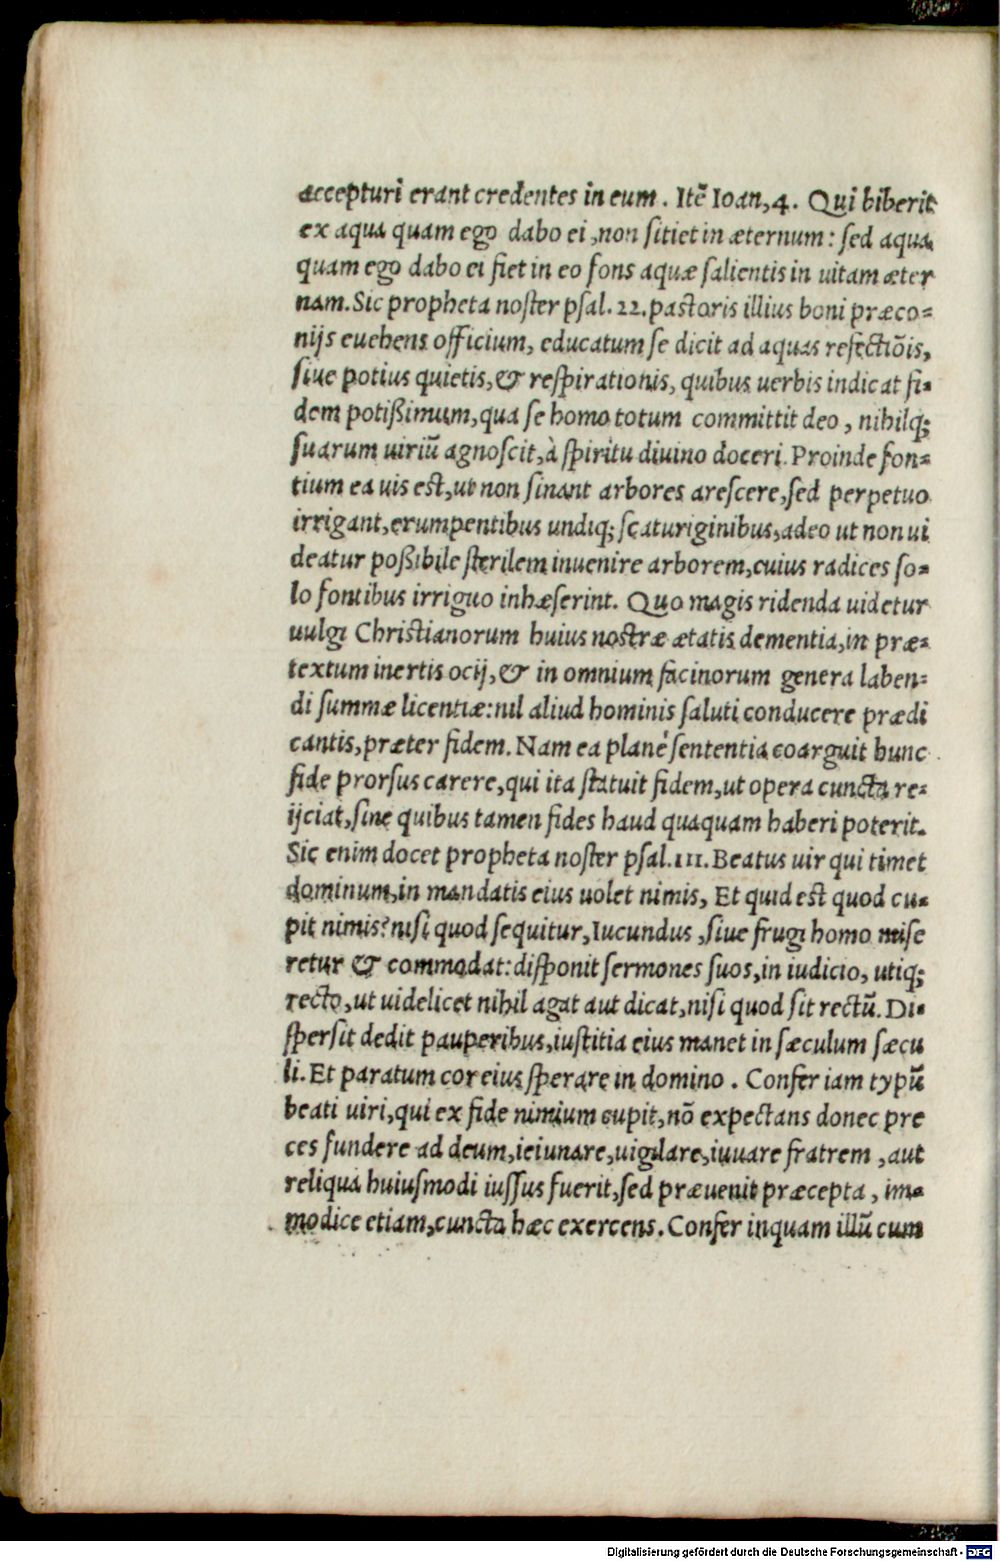 accepturi erant credentes in eum . Itẽ Ioan,4 . Qui biberit
ex aqua quam ego dabo ei ,non sitiet in æternum : sed aqua
quam ego dabo ei fiet in eo fons aquæ salientis in uitam æter
nam.Sic propheta noster psal.22.pastoris illius boni præco-
nijs euehens officium, educatum se dicit ad aquas refectiõis,
siue potius quietis,& respirationis, quibus uerbis indicat fi-
dem potißimum,qua se homo totum committit deo , nihilq;
suarum uiriũ agnoscit,à spiritu diuino doceri.Proinde fon-
tium ea uis est,ut non sinant arbores arescere,sed perpetuo
irrigant,erumpentibus undiq; scaturiginibus,adeo ut non ui
deatur poßibile sterilem inuenire arborem,cuius radices so-
lo fontibus irriguo inhæserint. Quo magis ridenda uidetur
uulgi Christianorum huius nostræ ætatis dementia,in præ-
textum inertis ocij,& in omnium facinorum genera laben-
di summæ licentiæ:nil aliud hominis saluti conducere prædi
cantis,præter fidem.Nam ea planè sententia coarguit hunc
fide prorsus carere,qui ita statuit fidem,ut opera cuncta re-
ijciat,sine quibus tamen fides haud quaquam haberi poterit.
Sic enim docet propheta noster psal.111.Beatus uir qui timet
dominum,in mandatis eius uolet nimis, Et quid est quod cu-
pit nimis?nisi quod sequitur,Iucundus ,siue frugi homo mise
retur & commodat:disponit sermones suos,in iudicio, utiq;
recto,ut uidelicet nihil agat aut dicat,nisi quod sit rectũ.Di-
spersit dedit pauperibus,iustitia eius manet in sæculum sæcu
li.Et paratum cor eius sperare in domino . Confer iam typũ
beati uiri,qui ex fide nimium cupit,nõ expectans donec pre
ces fundere ad deum,ieiunare,uigilare,iuuare fratrem ,aut
reliqua huiusmodi iussus fuerit,sed præuenit præcepta , im-
modice etiam,cuncta hæc exercens.Confer inquam illũ cum
Digitalisierung gefördert durch die Deutsche Forschungsgemeinschaft - DFG